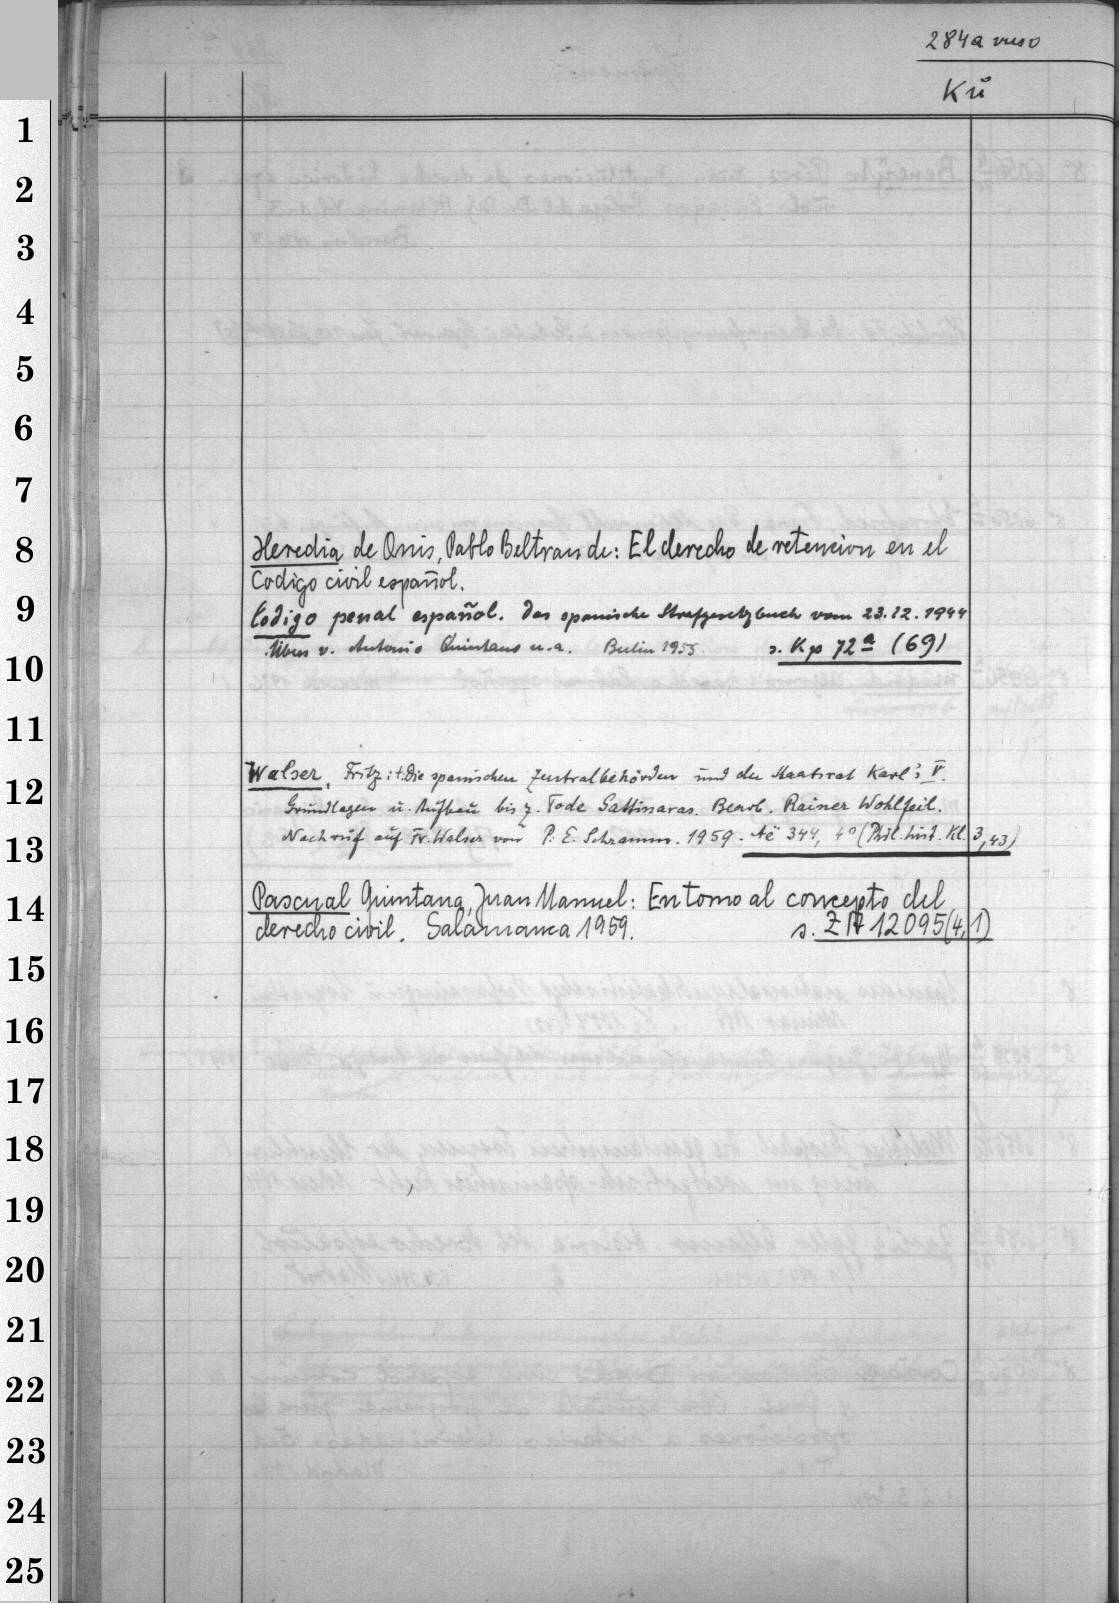 284a verso
Ků
1
2
3
4
5
6
7
8
Heredia de Onis, Pablo Beltran de: El derecho de retencion en el
Codigo civil español.
9
Codigo penal español. Das spanische Strafgesetzbuch vom 23.12.1944
Übers v. Antonio Quintano u.a. Berlin 1955. s. Kp 72a (69)
10
11
Walser, Fritz: +Die spanischen Zentralbehörden und der Staatsrat Karl's V.
12
Grundlagen u. Aufbau bis z. Tode Gattinaras. Bearb. Rainer Wohlfeil.
Nachruf auf Fr. Walser von P. E. Schramm. 1959. Aë 344, 4° (Phil.hist.Kl. 3,43)
13
Pascual Quintana, Juan Manuel: En torno al concepto del
14
derecho civil. Salamanca 1959. s. ZA 12095(4,1)
15
16
17
18
19
20
21
22
23
24
25